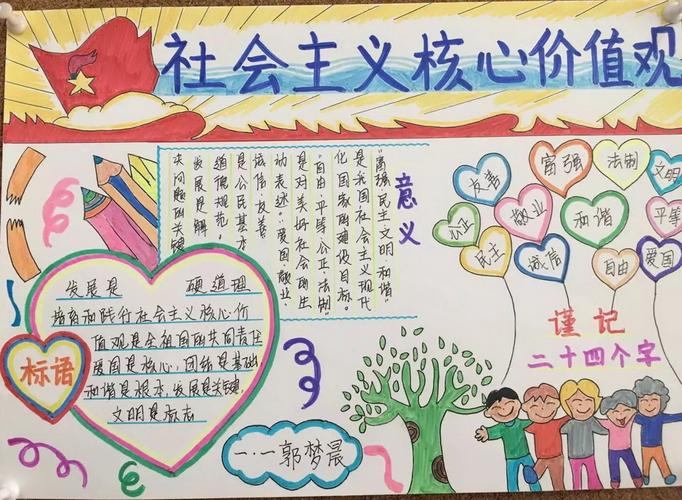 社会主义核心价值观
意义
"富强、民主、文明、和谐"
是我国社会主义现代
化国家的建设目标。
"自由、平等、公正、法制"
是对美好社会的生
动表述;爱国、敬业
诚信、友善
是公民基本
道德规范,
发展是解
决问题的关键
友善
富强
法制
文明
公正
敬业
和谐
平等
民主
诚信
自由
爱国
谨记
二十四个字
标语
发展是 硬道理
培育和践行社会主义核心价
值观是全祖国的共同责任
爱国是核心,团结是基础,
和谐是根本,发展是关键,
文明是标志
一·一郭梦晨